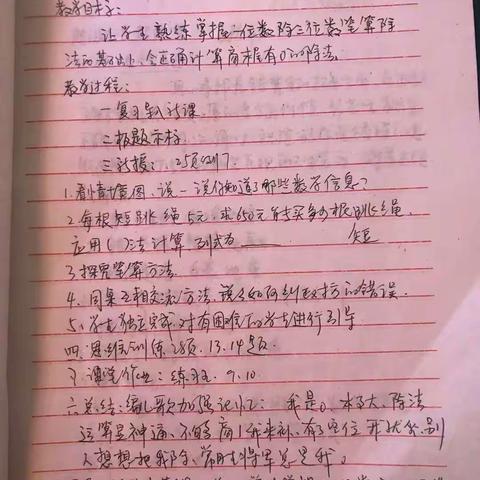 教学目标：
让学生熟练掌握一位数除三位数笔算除
法的基础上，会正确计算商末尾有0的除法。
教学过程：
一复习导入新课
二板题示标
三新授：25页例7
1.看情境图，说一说你知道了哪些数学信息？
2.每根短跳绳5元，求650元能买多少根跳绳。
应用( )法计算 列式为 短
3.探究笔算方法
4.同桌互相交流方法，说如何纠改指的错误
5、学生独立完成，对有困难的学生进行引导
四.思维训练 28页.13.14题.
五.课堂作业：练习 9.10.
六总结：编儿歌加强记忆：我是0，本事大，除法
运算显神通、不够商1我来补，有了空位我，别
人想想把我除，常胜将军总是我。